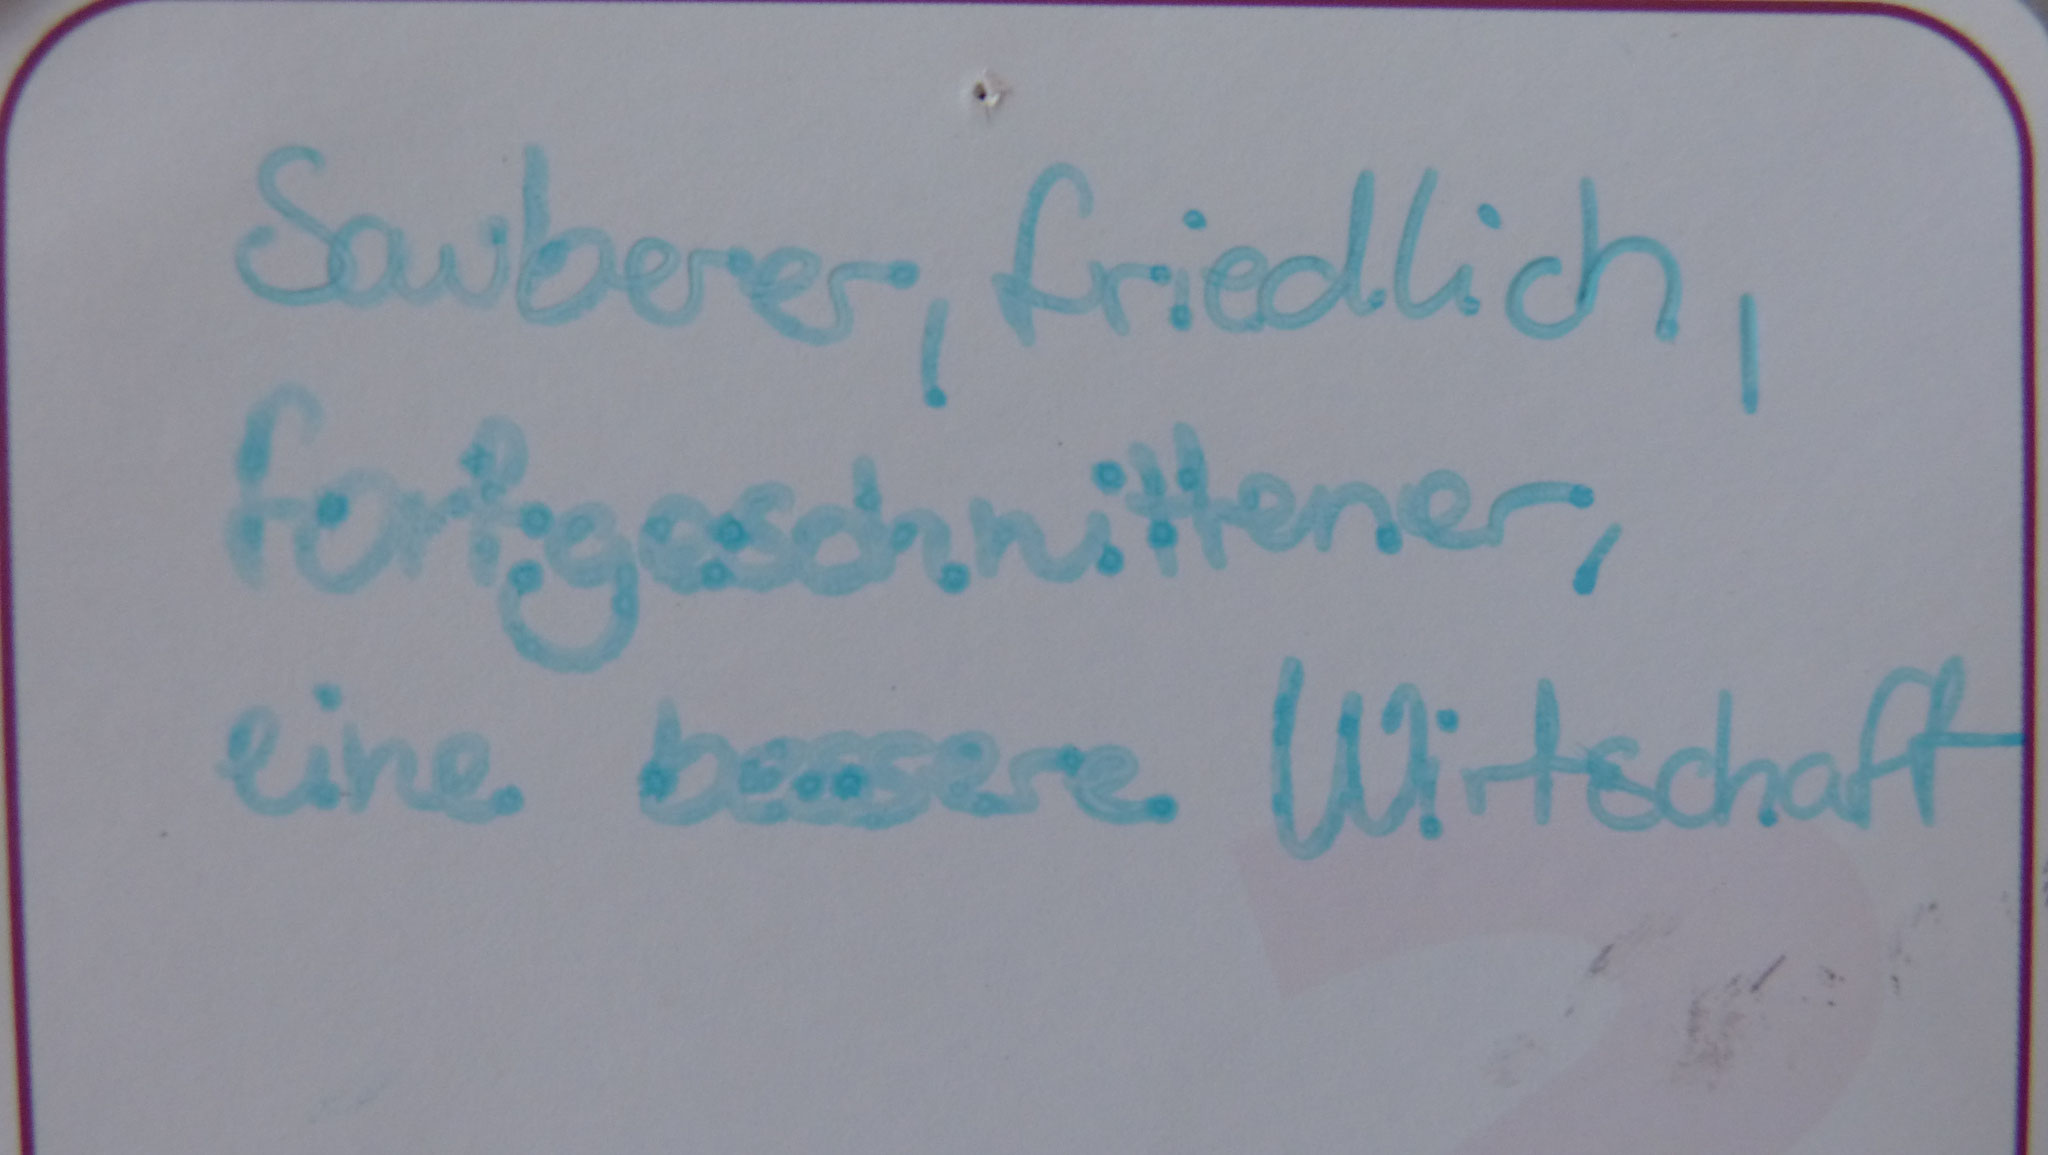 Sauberer, friedlich,
fortgeschnittener,
eine bessere Wirtschaft